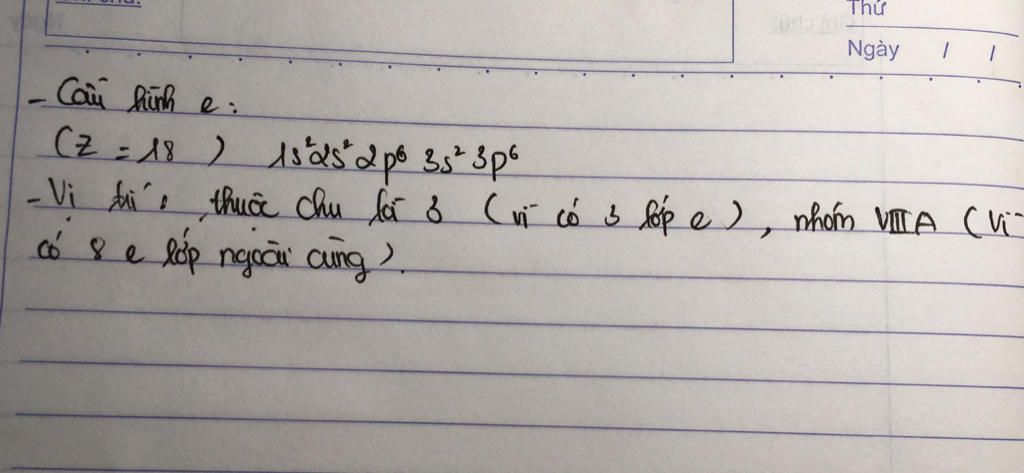 Thứ
Ngày / /
- Cấu hình e:
(Z = 18 ) 1s²2s²2p⁶ 3s² 3p⁶
- Vị trí: thuộc chu kì 3 (vì có 3 lớp e), nhóm VIIIA (Vì
có 8 e lớp ngoài cùng).